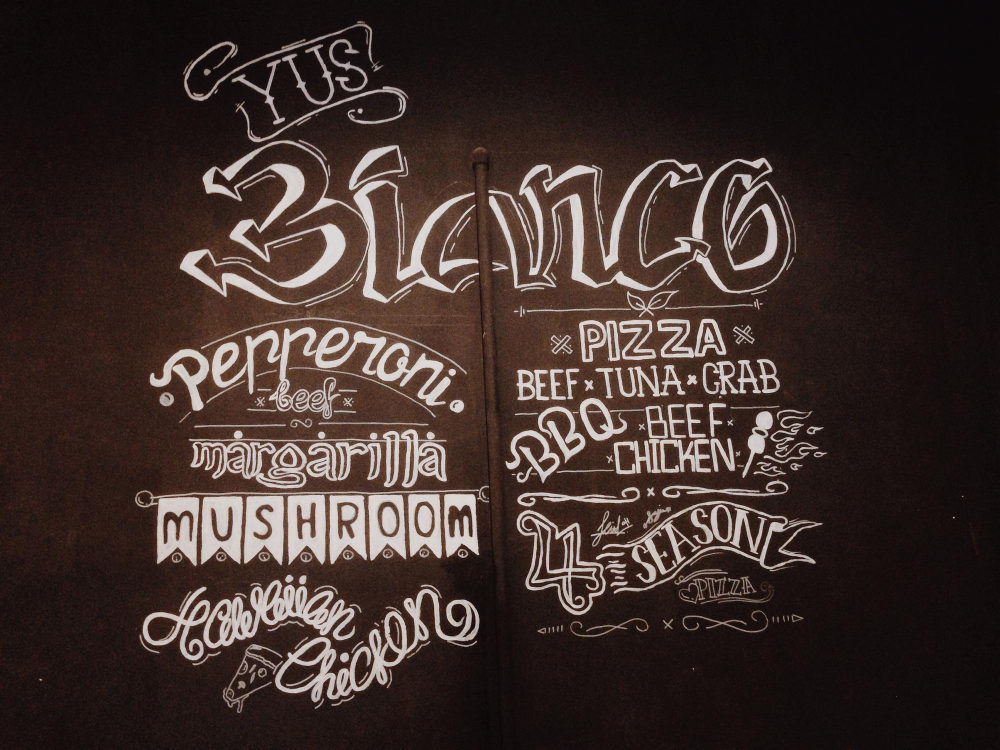 YUS
Bianco
Pepperoni
beef
margarilla
MUSHROOM
Hawaiian
Chicken
PIZZA
BEEF × TUNA × CRAB
BBQ
BEEF
CHICKEN
4
SEASON
PIZZA